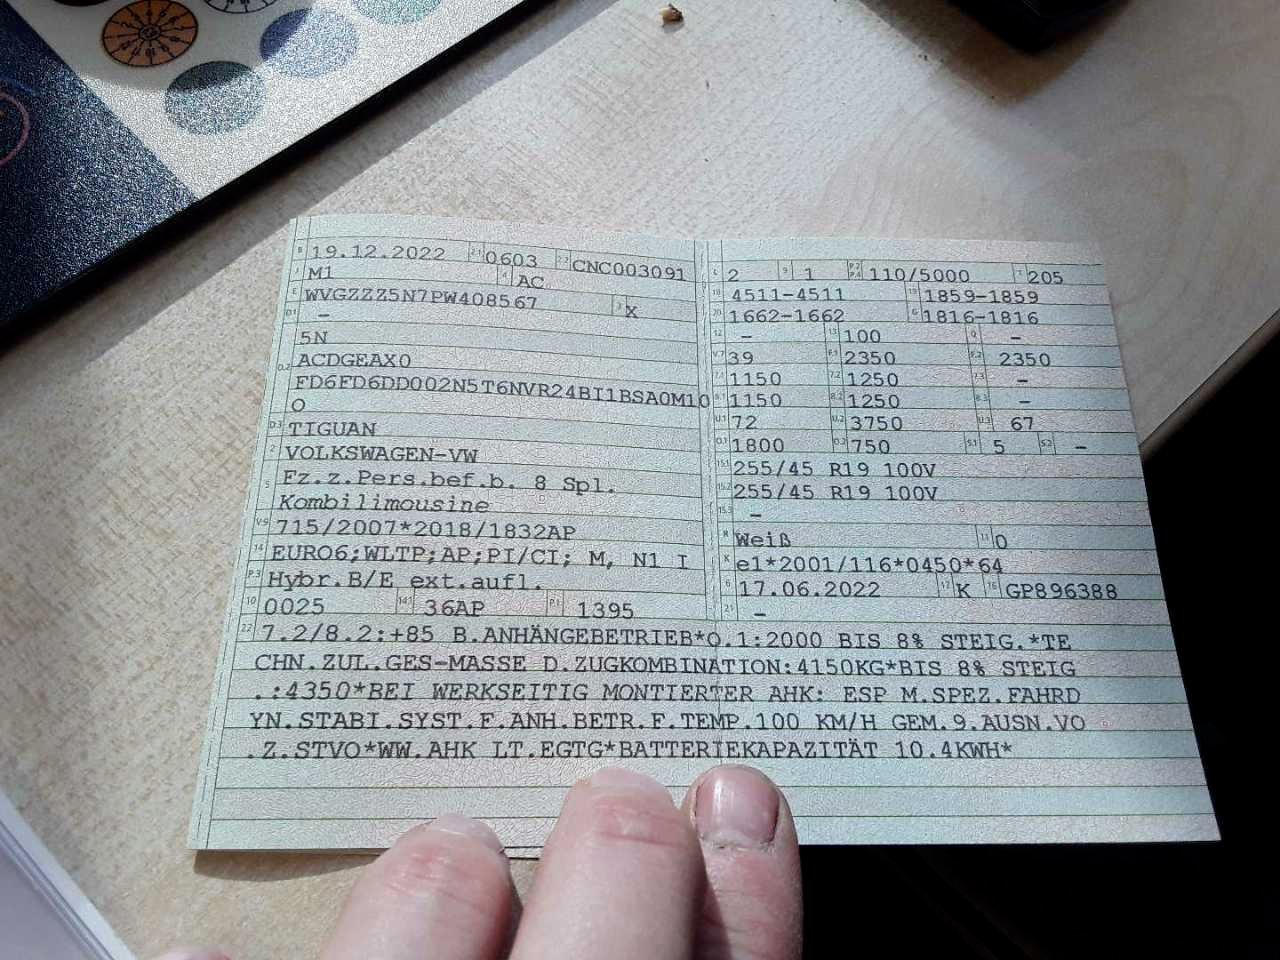 B 19.12.2022 2.1 0603 2.2 CNC003091
J M1 4 AC
E WVGZZZ5N7PW408567 3 X
D.1 -
5N
D.2 ACDGEAX0
FD6FD6DD002N5T6NVR24BI1BSA0M10
0
D.3 TIGUAN
2 VOLKSWAGEN-VW
5 Fz.z.Pers.bef.b. 8 Spl.
Kombilimousine
V.9 715/2007*2018/1832AP
14 EURO6;WLTP;AP;PI/CI; M, N1 I
P.3 Hybr.B/E ext.aufl.
10 0025 14.1 36AP P.1 1395
L 2 9 1 P.2 P.4 110/5000 T 205
18 4511-4511 19 1859-1859
20 1662-1662 G 1816-1816
12 - 13 100 Q -
V.7 39 F.1 2350 F.2 2350
7.1 1150 7.2 1250 7.3 -
8.1 1150 8.2 1250 8.3 -
U.1 72 U.2 3750 U.3 67
O.1 1800 O.2 750 S.1 5 S.2 -
15.1 255/45 R19 100V
15.2 255/45 R19 100V
15.3 -
R Weiß 11 0
K e1*2001/116*0450*64
6 17.06.2022 17 K 16 GP896388
21 -
22 7.2/8.2:+85 B.ANHÄNGEBETRIEB*O.1:2000 BIS 8% STEIG.*TE
CHN.ZUL.GES-MASSE D.ZUGKOMBINATION:4150KG*BIS 8% STEIG
.:4350*BEI WERKSEITIG MONTIERTER AHK: ESP M.SPEZ.FAHRD
YN.STABI.SYST.F.ANH.BETR.F.TEMP.100 KM/H GEM.9.AUSN.VO
.Z.STVO*WW.AHK LT.EGTG*BATTERIEKAPAZITÄT 10.4KWH*